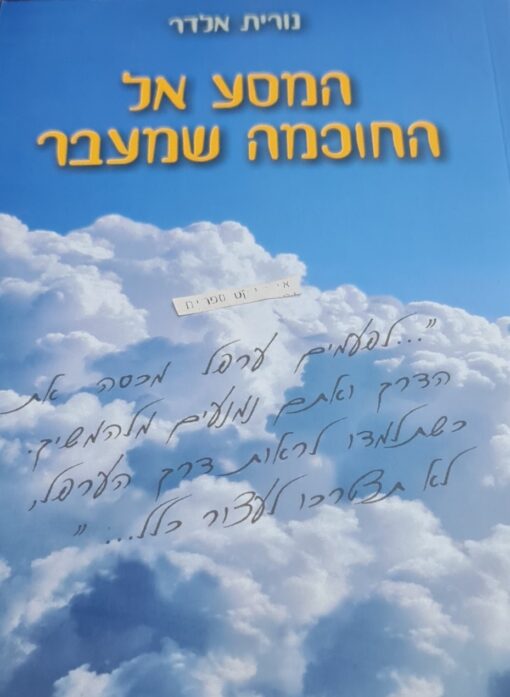 נורית אלדר
המסע אל
החוכמה שמעבר
ספרים
"...לפעמים ערפל מכסה את
הדרך ואתם נמנעים מלהמשיך.
כשתלמדו לראות דרך הערפל,
לא תצטרכו לעצור כלל..."